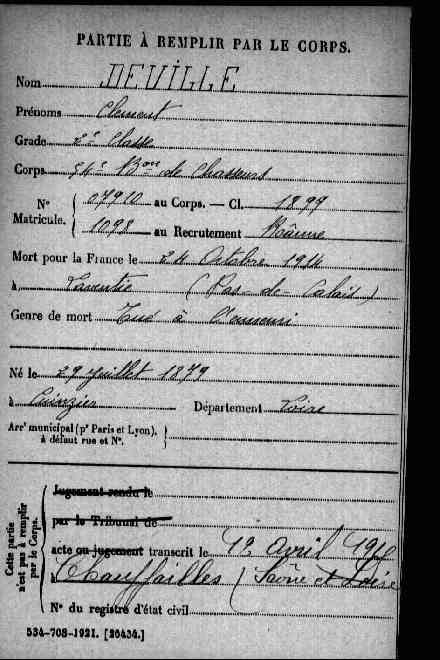 PARTIE À REMPLIR PAR LE CORPS.
Nom DEVILLE
Prénoms Clement
Grade 2e Classe
Corps 54e Bon de Chasseurs
No Matricule. { 07910 au Corps. — Cl. 1899
1098 au Recrutement Roanne
Mort pour la France le 24 Octobre 1914
à Laventie (Pas-de-Calais)
Genre de mort Tué à l'ennemi
Né le 29 Juillet 1879
à Cuinzier Département Loire
Arrt municipal (pr Paris et Lyon), à défaut rue et No. }
Cette partie n'est pas à remplir par le Corps. {
Jugement rendu le
par le Tribunal de
acte ou jugement transcrit le 12 avril
à Chauffailles (Saône et Loire
No du registre d'état civil
534-708-1921. [26434.]